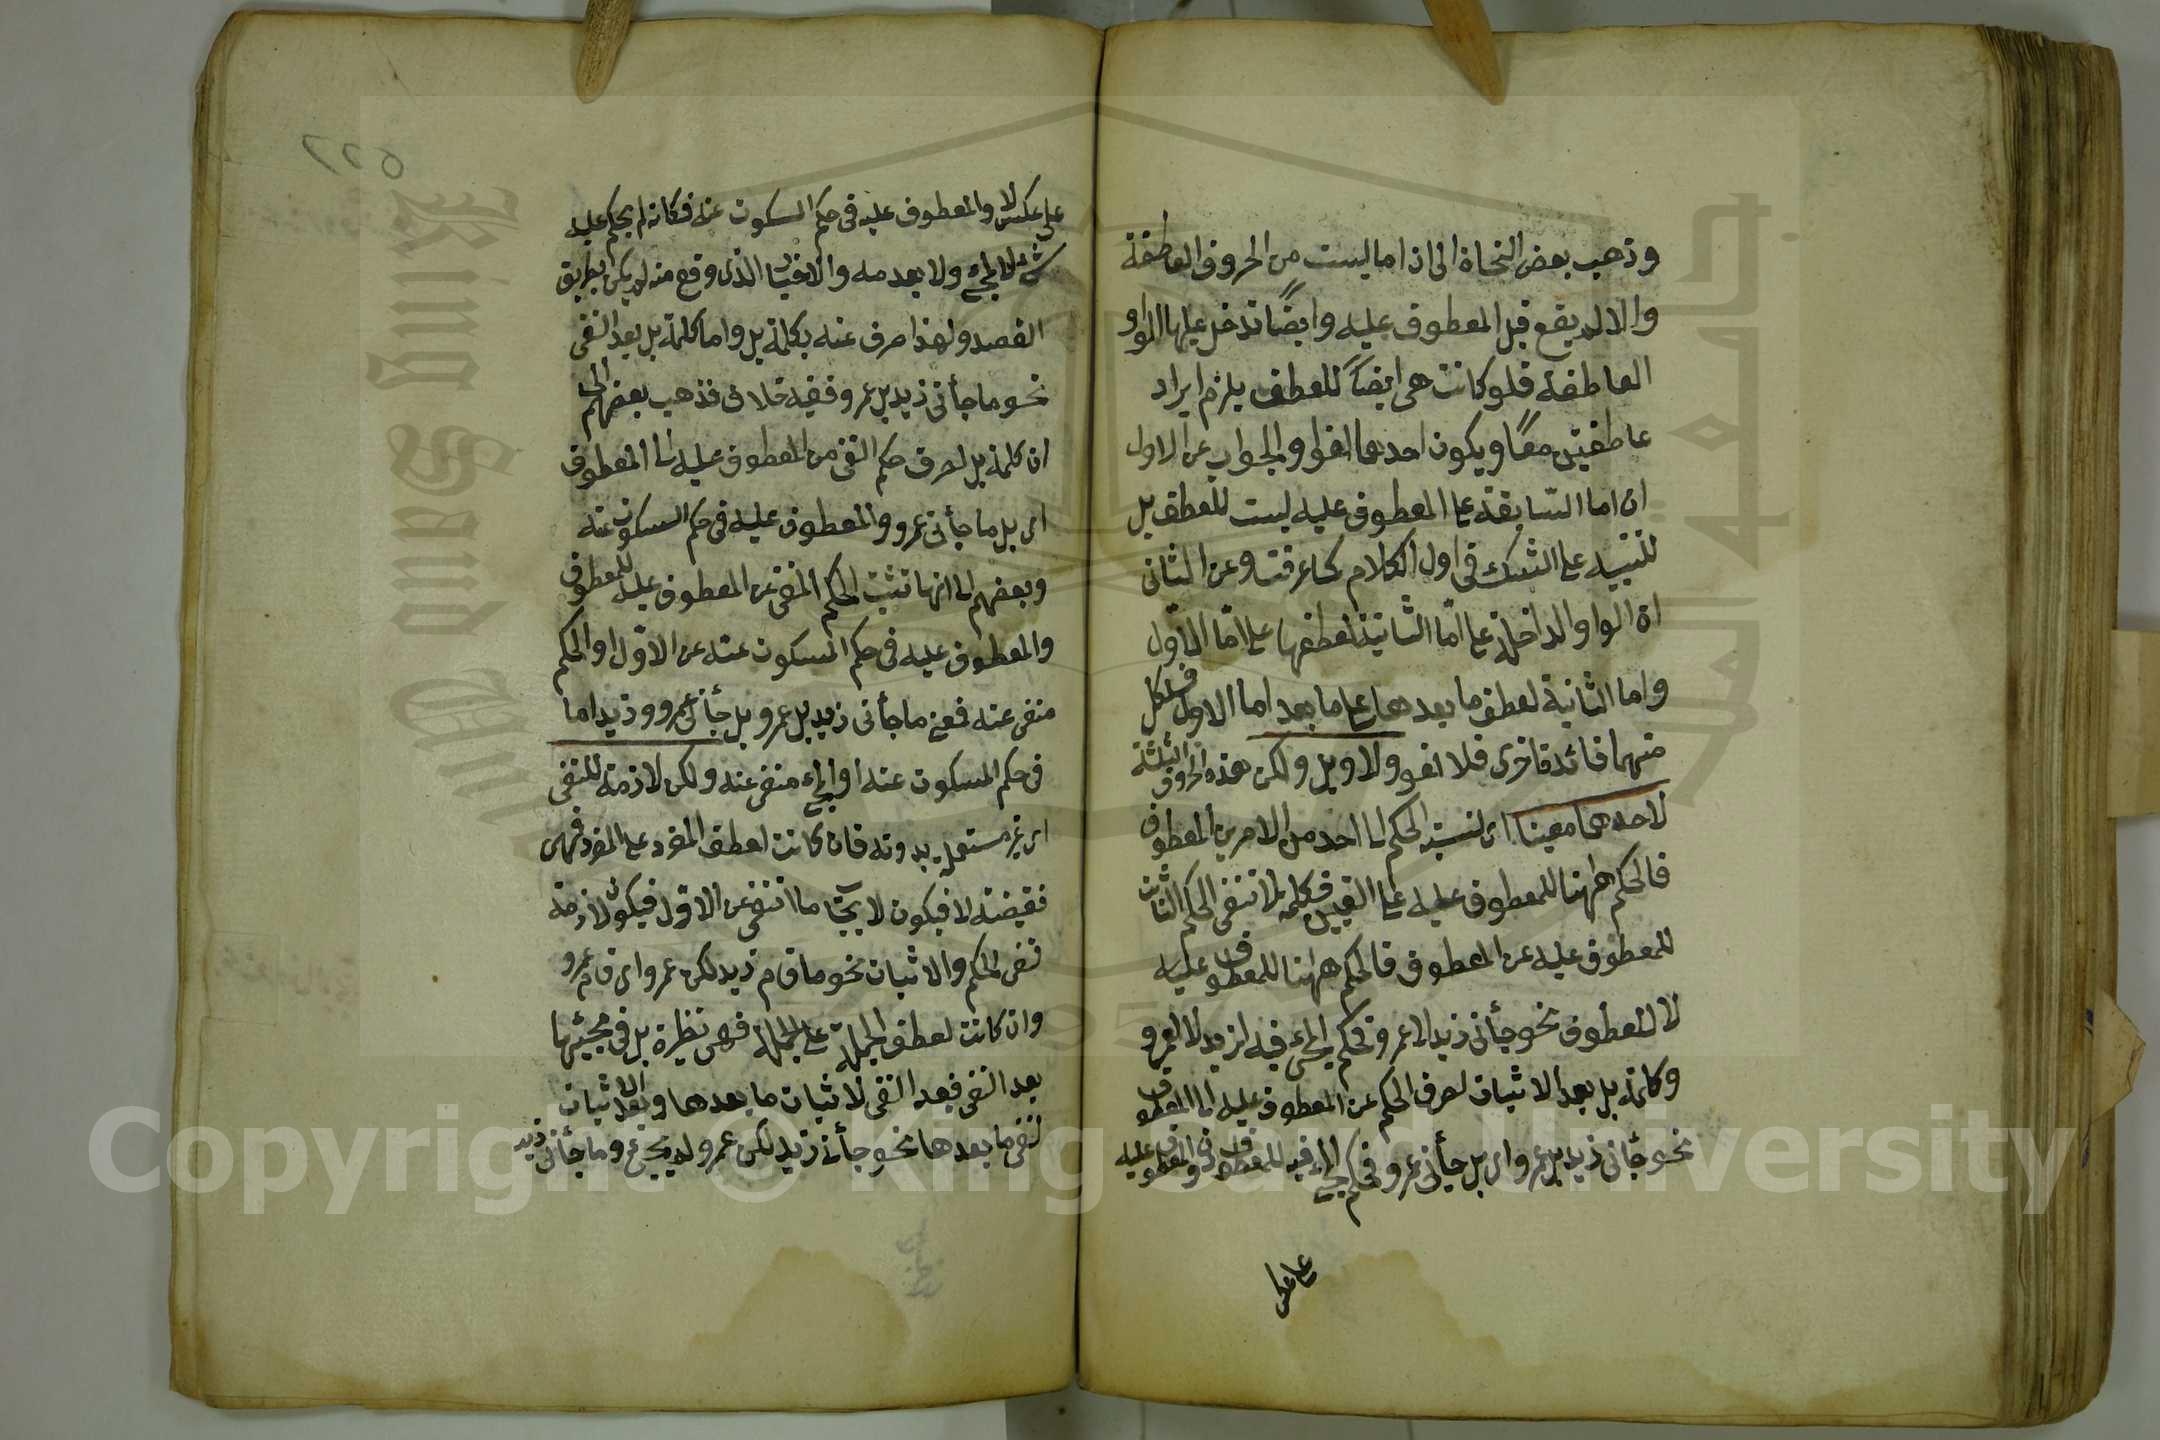 وذهب بعض النحاة الى ان اما ليست من الحروف العاطفة
والا لم يقع قبل المعطوف عليه وايضًا تدخل عليها الواو
العاطفة فلو كانت هى ايضًا للعطف يلزم ايراد
عاطفتين معًا ويكون احدهما لغوا والجواب عن الاول
ان اما السّابقة على المعطوف عليه ليست للعطف بل
للتنبيه على الشك فى اول الكلام كما عرفت وعن الثانى
ان الواو الداخلة على امّا الثانية لعطفها على امّا الاول
واما الثانية لعطف ما بعدها على ما بعد اما الاول فلكل
منهما فائدة اخرى فلا لغو ولا وبل ولكن هذه الحروف الثلثة
لاحدهما معينا اى لنسبة الحكم الى احد من الامرين المعطوف
فالحكم ههنا للمعطوف عليه على التعيين فكلمة لا تنفى الحكم الثابت
للمعطوف عليه عن المعطوف فالحكم ههنا للمعطوف عليه
لا للمعطوف نحو جأنى زيد لا عمرو فحكم المجئ فيه لزيد لا لعمرو
وكلمة بل بعد الاثبات لصرف الحكم عن المعطوف عليه الى المعطوف
نحو جأنى زيد بل عمرو اى بل جأنى عمرو فحكم المجئ فيه للمعطوف دون المعطوف عليه
على عكس لا والمعطوف عليه فى حكم السكوت عنه فكانه لم يحكم عليه
شئ لا بالمجئ ولا بعدمه والاخبار الذى وقع منه لم يكن بطريق
القصد ولهذا صرف عنه بكلمة بل واما كلمة بل بعد النفى
نحو ما جأنى زيد بل عمرو ففيه خلاف فذهب بعضهم الى
ان كلمة بل لصرف حكم النفى من المعطوف عليه الى المعطوف
اى بل ما جأنى عمرو والمعطوف عليه فى حكم السكوت عنه
وبعضهم الى انها تثبت الحكم المنفى عن المعطوف عليه للمعطوف
والمعطوف عليه فى حكم المسكوت عنه عن الاوّل او الحكم
منفى عنه فمعنى ما جأنى زيد بل عمرو بل جأنى عمرو وزيد اما
فى حكم المسكوت عنه او المجئ منفى عنه ولكن لازمة للنفى
اى غير مستعملة بدونه فان كانت لعطف المفرد على المفرد فهى
نقيضة لا فيكون لايجاب ما انتفى عن الاوّل فيكون لازمة
نفى الحكم والاثبات نحو ما قام زيد لكن عمرو اى قام عمرو
وان كانت لعطف الجملة على الجملة فهى نظيرة بل فى مجيئها
بعد النفى فبعد النفى لاثبات ما بعدها وبعد الاثبات
لنفى ما بعدها نحو جأنى زيد لكن عمرو لم يجئ وما جأنى زيد
على عكس
Copyright © King Saud University
King Saud University
جامعة الملك
1957